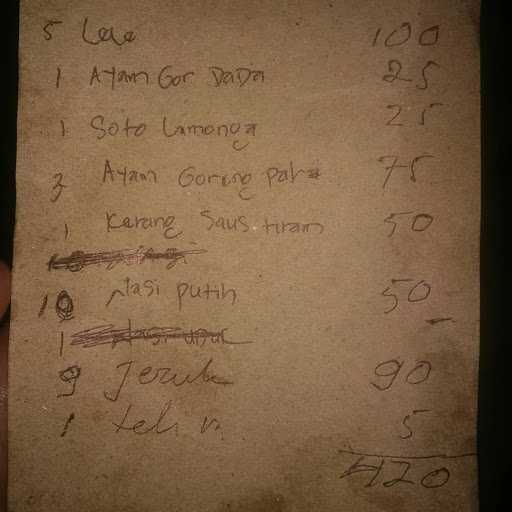 5 Lele 100
1 Ayam Gor DaDa 25
1 Soto Lamonga 25
3 Ayam Goreng paha 75
1 Kerang Saus tiram 50
10 Nasi putih 50
1
9 Jeruk 90
1 teh 5
420